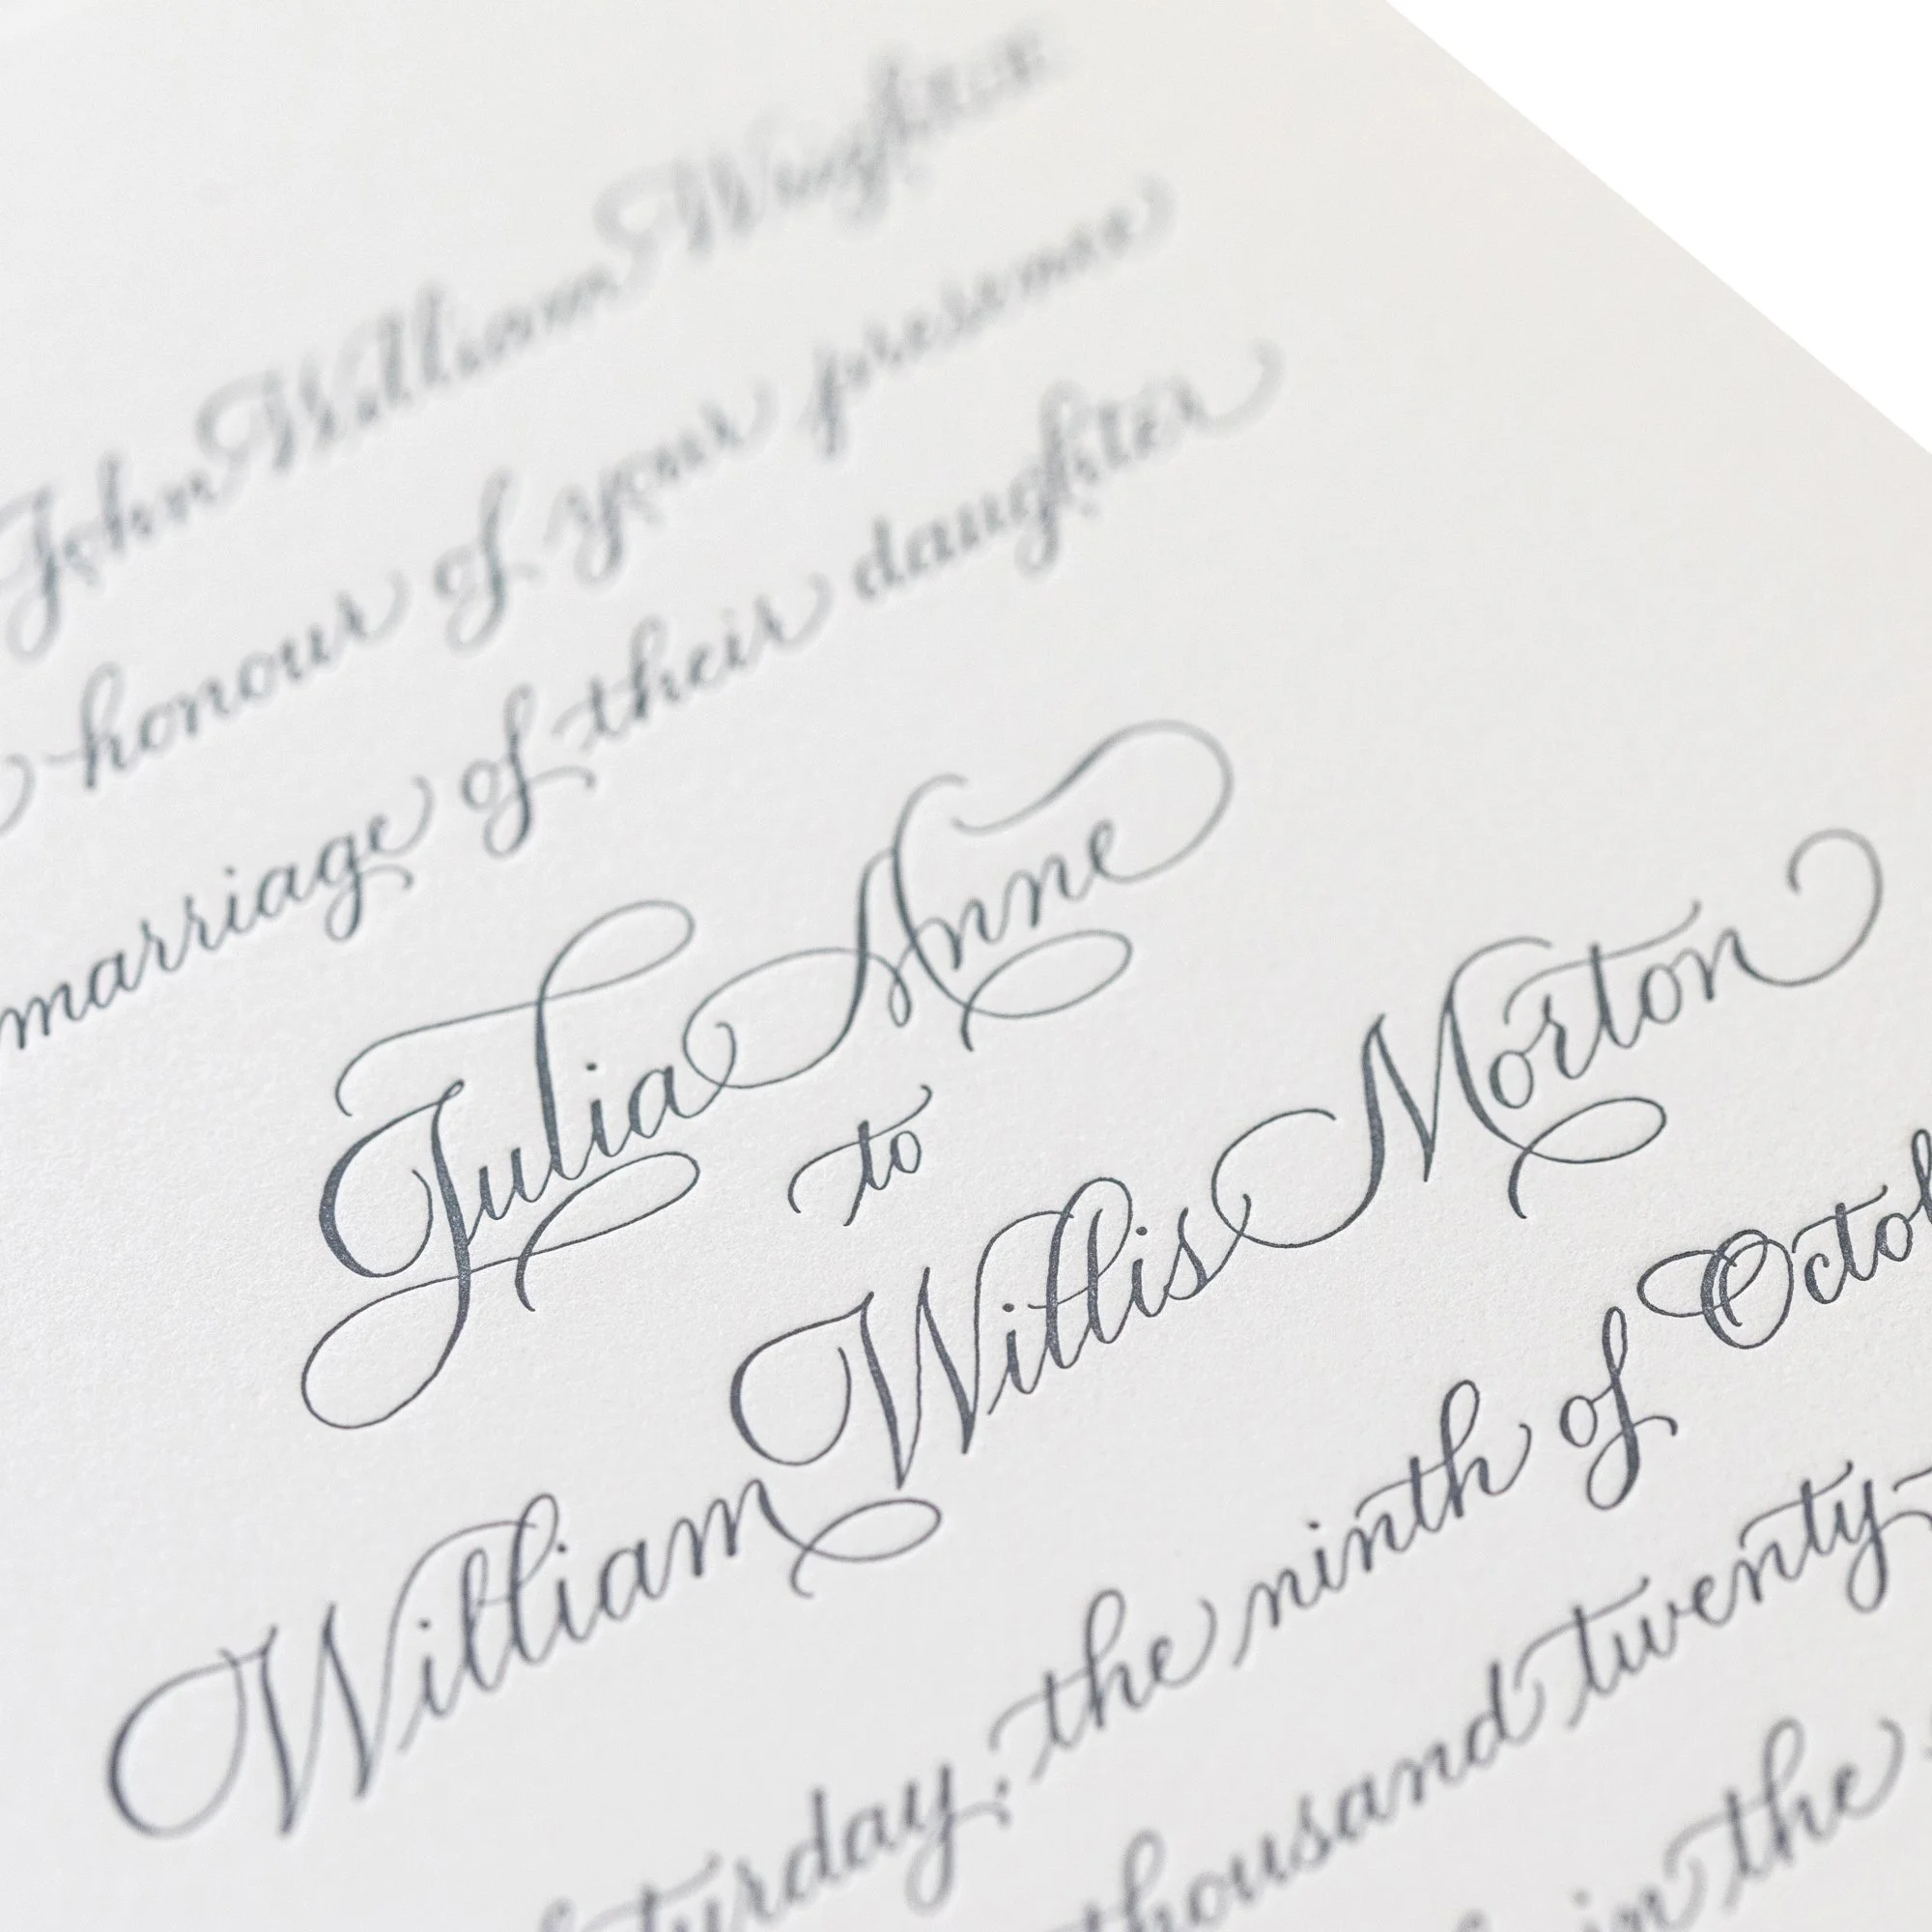 John William Wright
honour of your presence
marriage of their daughter
Julia Anne
to
William Willis Morton
the ninth of
thousand twenty-
in the